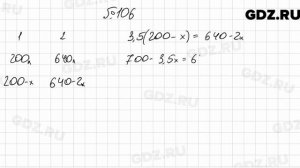 GDZ.RU
№106
1 2 3,5(200-x) = 640-2x
200л 640л 700-3,5x = 6
200-x 640-2x
GDZ.RU